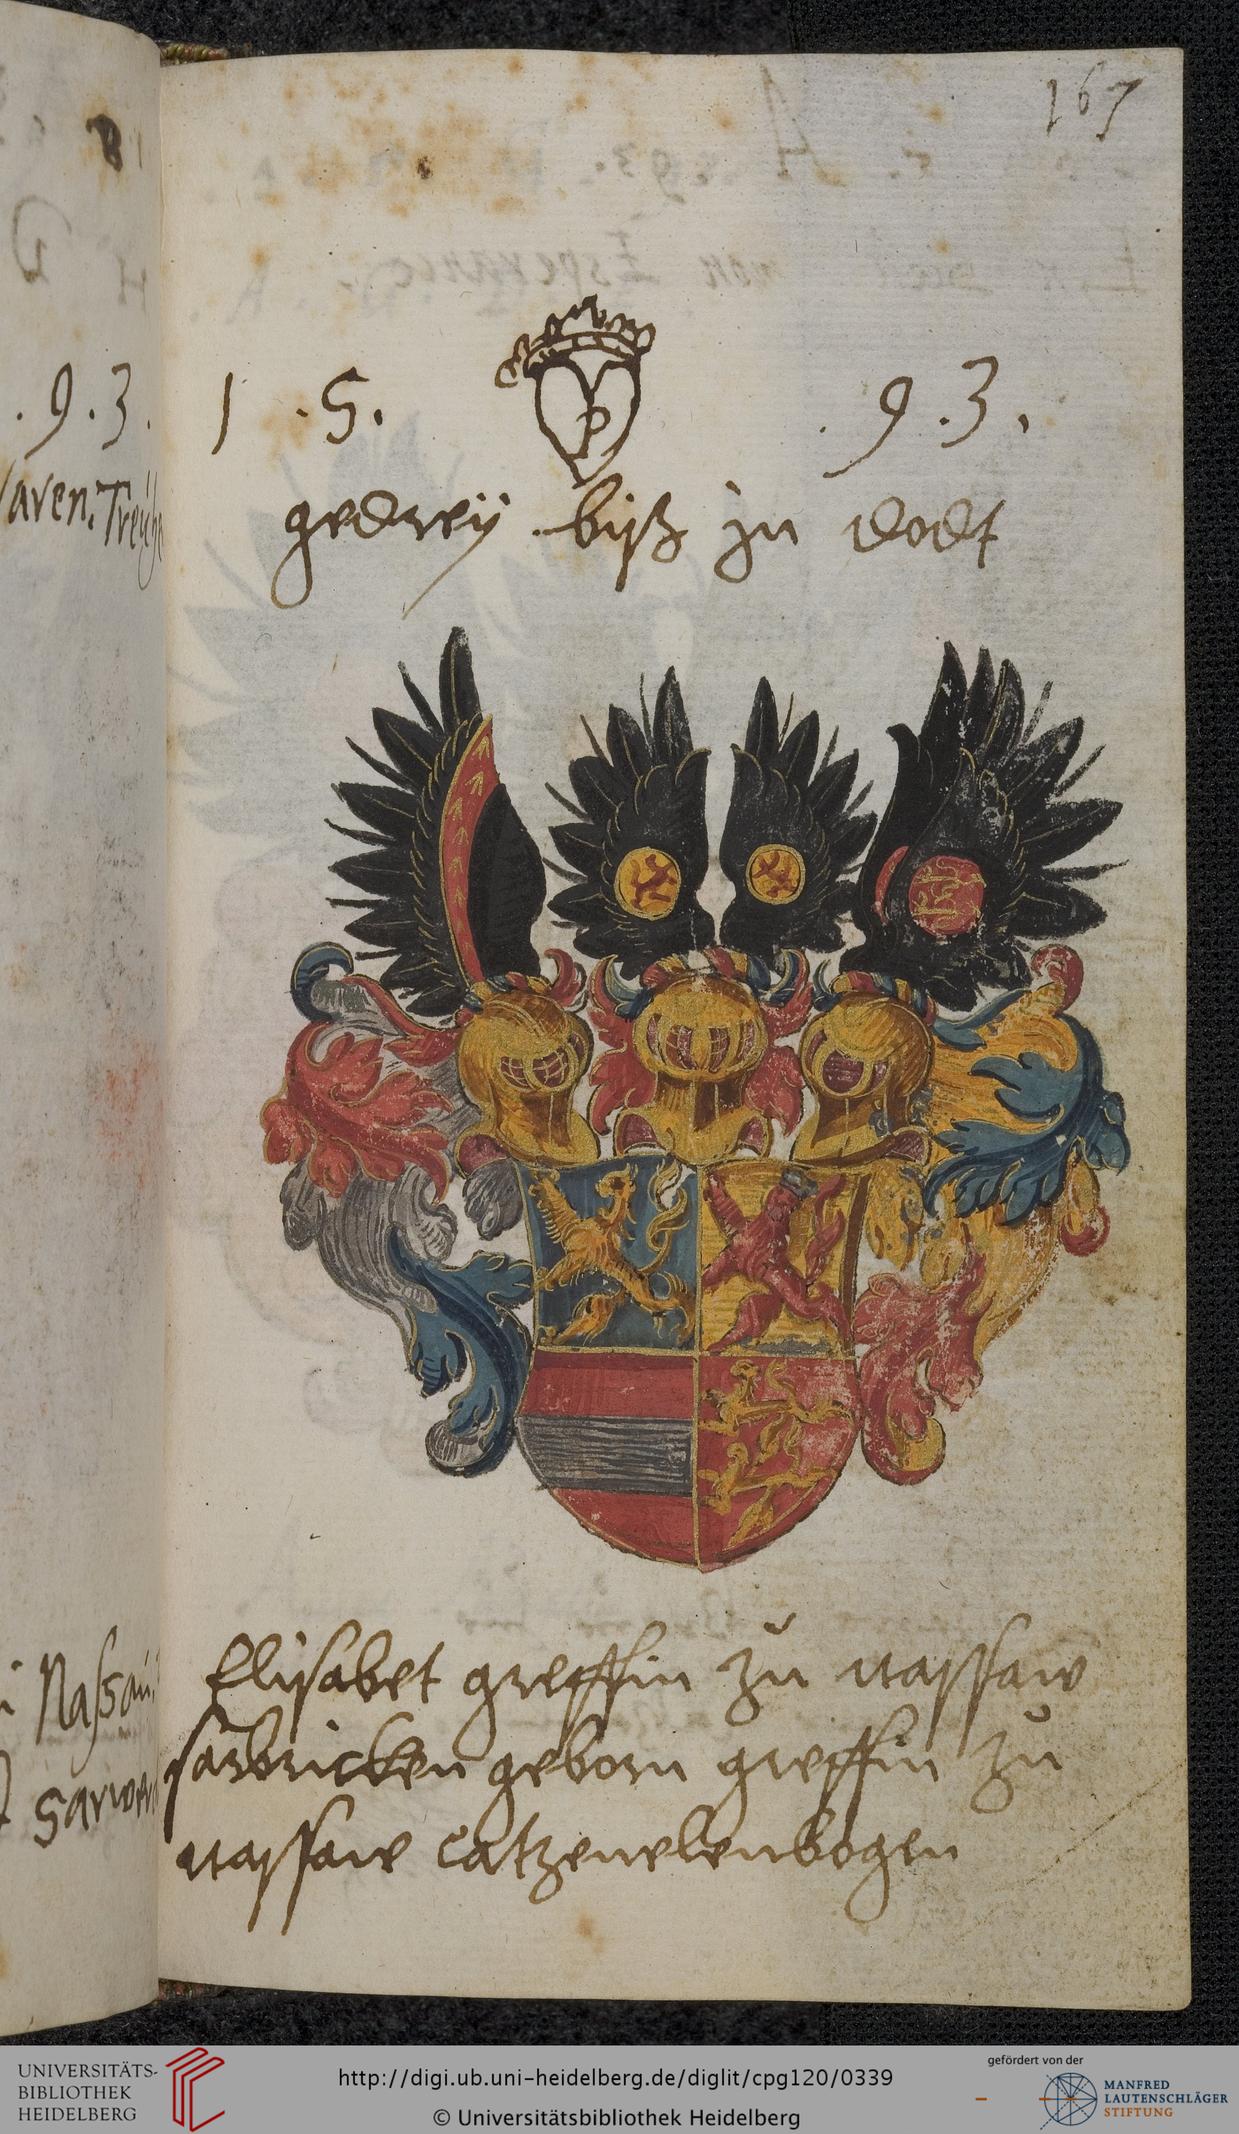 167
1 .5. .9.3.
p
gedreÿ bis zu dodt
Elisabet greffin zu nassaw
sarbricken geborn greffin zu
nassaw Catzenelenbogen
.9.3.
Nassau.
UNIVERSITÄTS-
BIBLIOTHEK
HEIDELBERG
http://digi.ub.uni-heidelberg.de/diglit/cpg120/0339
© Universitätsbibliothek Heidelberg
gefördert von der
MANFRED
LAUTENSCHLÄGER
STIFTUNG